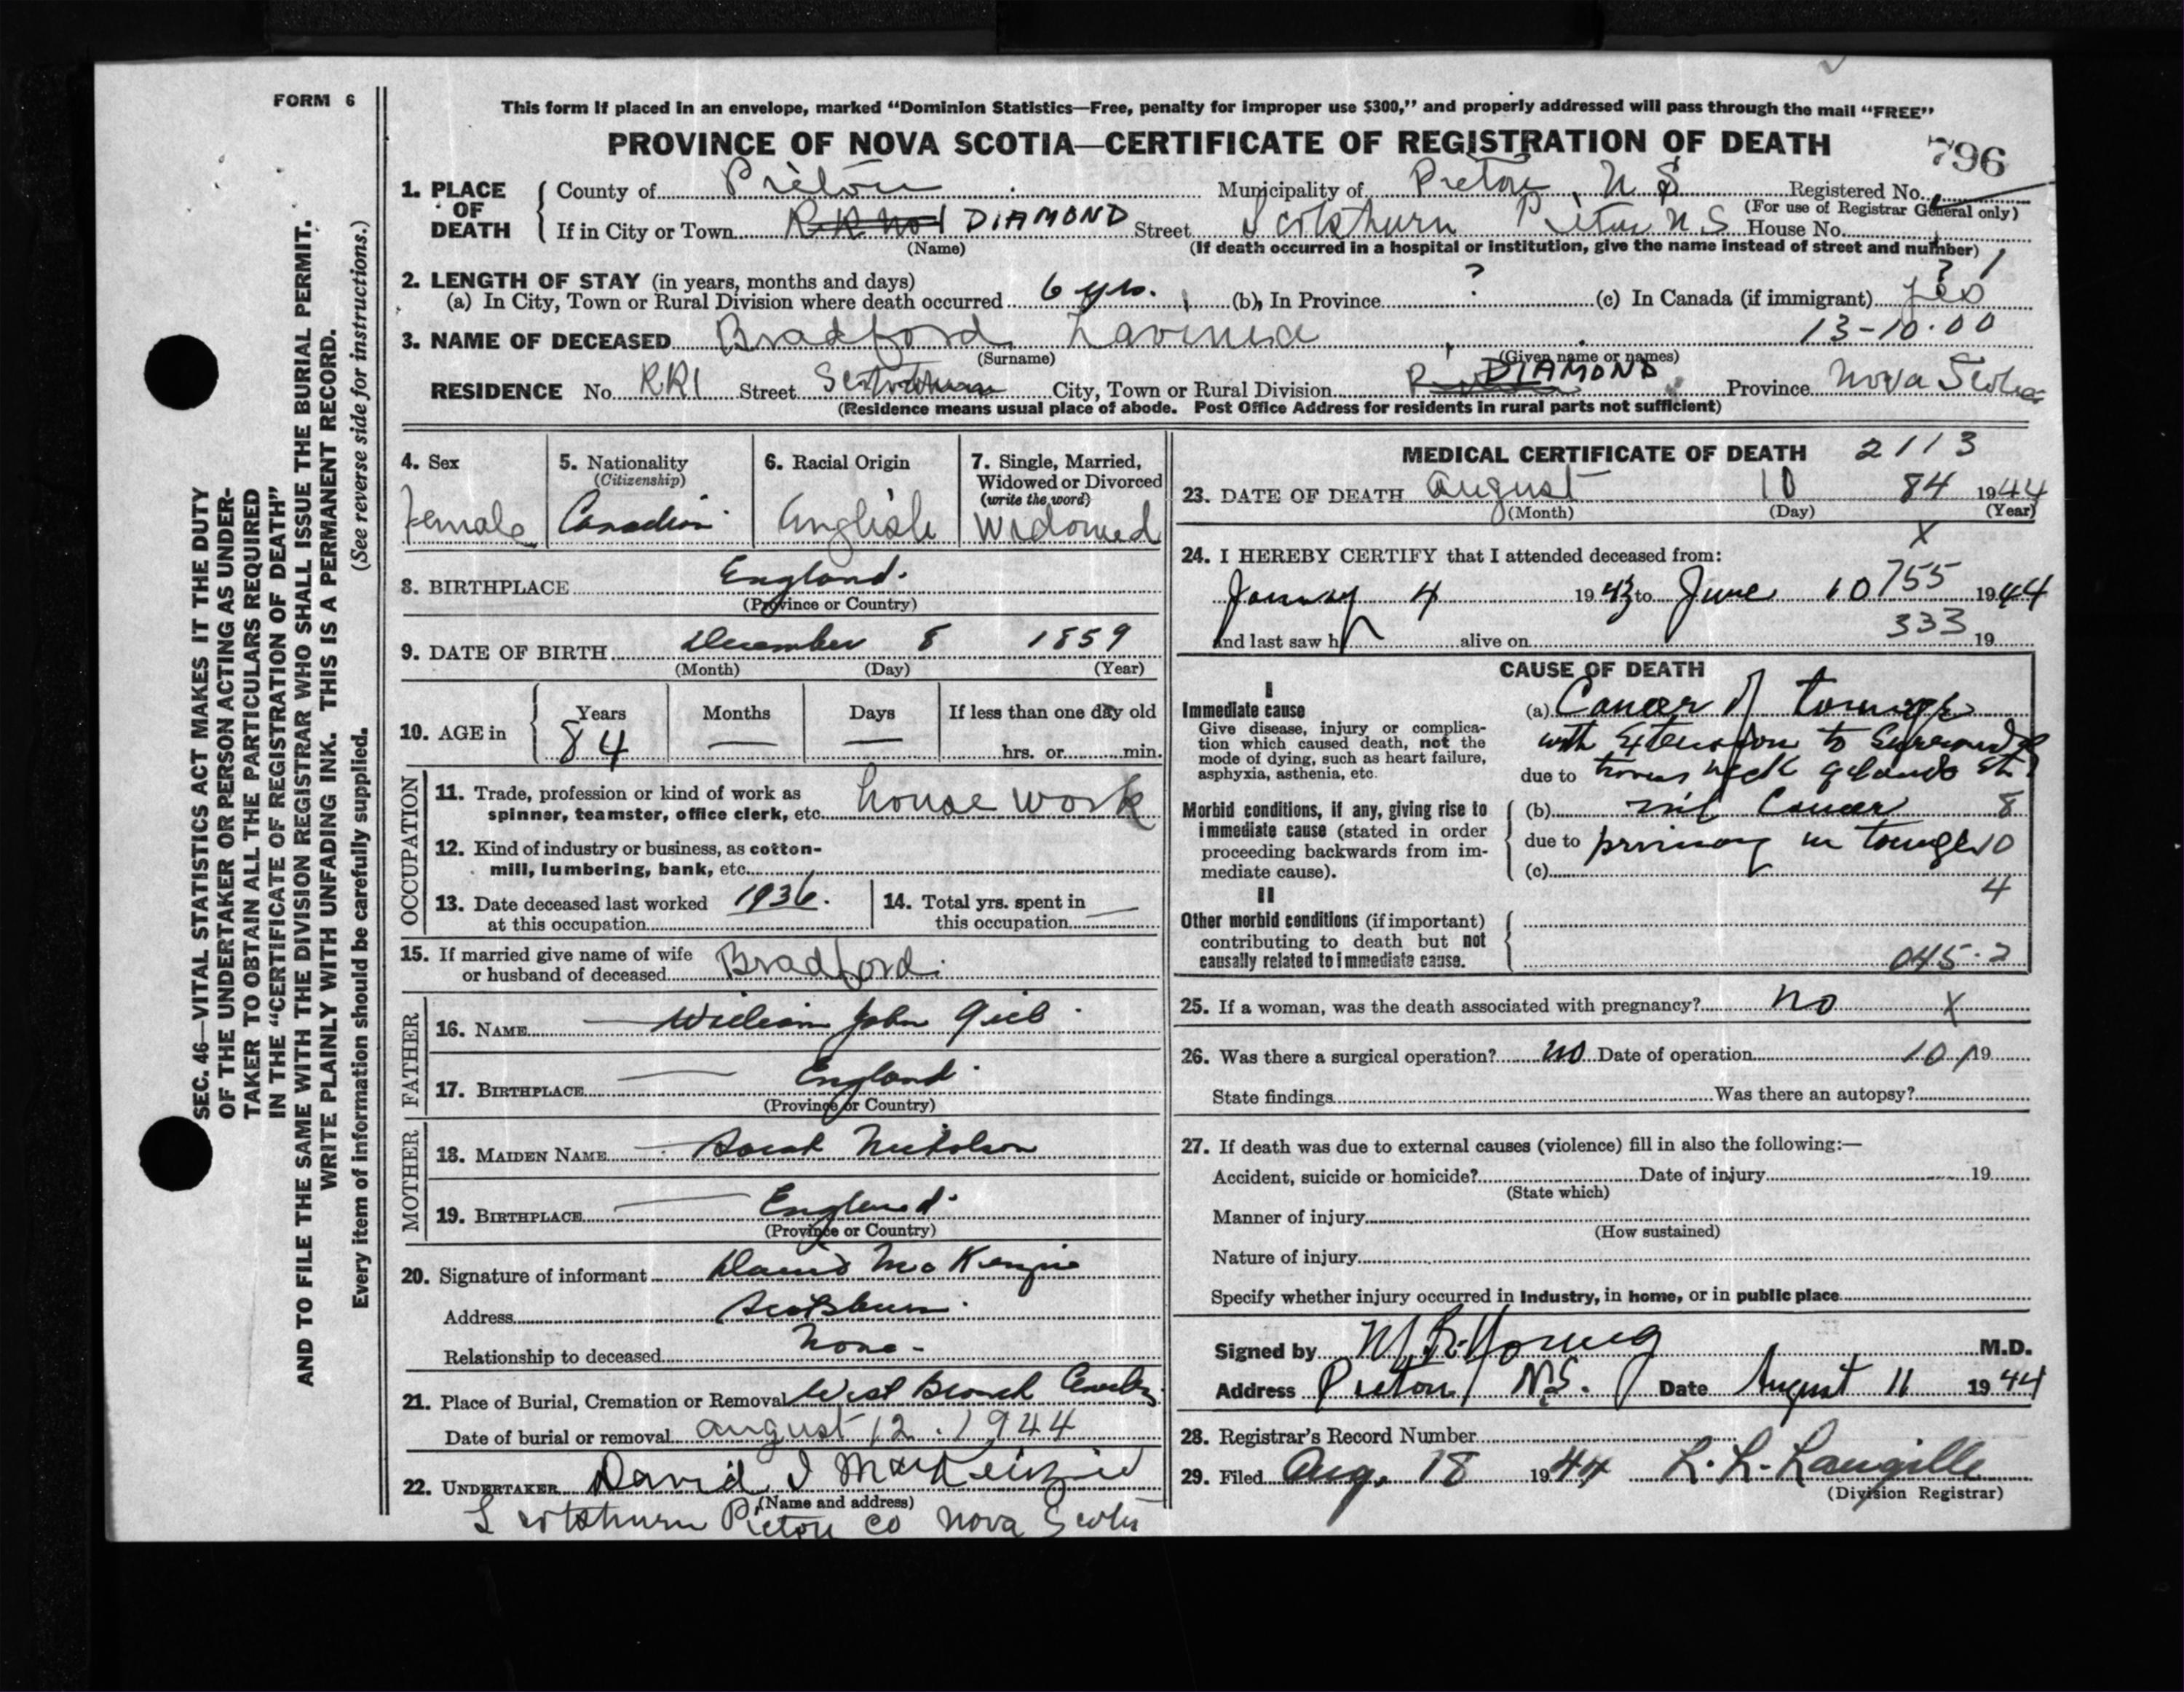 FORM 6
This form if placed in an envelope, marked "Dominion Statistics—Free, penalty for improper use $300," and properly addressed will pass through the mail "FREE"
PROVINCE OF NOVA SCOTIA—CERTIFICATE OF REGISTRATION OF DEATH
796
1. PLACE OF DEATH
County of Pictou Municipality of Pictou, N S Registered No.
(For use of Registrar General only)
If in City or Town R R No 1 DIAMOND Street Scotsburn Pictou N S House No.
(Name) (If death occurred in a hospital or institution, give the name instead of street and number)
2. LENGTH OF STAY (in years, months and days) ? 1
(a) In City, Town or Rural Division where death occurred 6 yrs. (b) In Province ? (c) In Canada (if immigrant) yes
13-10.00
3. NAME OF DECEASED Bradford Lavinia
(Surname) (Given name or names)
RESIDENCE No. RR1 Street Scotsburn City, Town or Rural Division DIAMOND Province Nova Scotia
(Residence means usual place of abode. Post Office Address for residents in rural parts not sufficient)
4. Sex Female
5. Nationality (Citizenship) Canadian
6. Racial Origin English
7. Single, Married, Widowed or Divorced (write the word) Widowed
8. BIRTHPLACE England.
(Province or Country)
9. DATE OF BIRTH December 8 1859
(Month) (Day) (Year)
10. AGE in Years 84 Months — Days — If less than one day old
hrs. or min.
OCCUPATION
11. Trade, profession or kind of work as spinner, teamster, office clerk, etc. house work
12. Kind of industry or business, as cotton-mill, lumbering, bank, etc.
13. Date deceased last worked at this occupation 1936.
14. Total yrs. spent in this occupation —
15. If married give name of wife or husband of deceased Bradford.
FATHER
16. NAME William John
17. BIRTHPLACE England.
(Province or Country)
MOTHER
18. MAIDEN NAME Sarah Nicholson
19. BIRTHPLACE England.
(Province or Country)
20. Signature of informant David McKenzie
Address Scotsburn.
Relationship to deceased None-
21. Place of Burial, Cremation or Removal West Branch
Date of burial or removal august 12. 1944
22. UNDERTAKER David I MacKenzie
(Name and address)
Scotsburn Pictou Co Nova Scotia
MEDICAL CERTIFICATE OF DEATH 2113
23. DATE OF DEATH August 10 84 1944
(Month) (Day) (Year)
X
24. I HEREBY CERTIFY that I attended deceased from:
January 4 1943 to June 10 755 1944
and last saw h alive on 333 19
CAUSE OF DEATH
I
Immediate cause
Give disease, injury or complication which caused death, not the mode of dying, such as heart failure, asphyxia, asthenia, etc.
(a) Cancer of tongue
with Extension to
due to neck glands
Morbid conditions, if any, giving rise to immediate cause (stated in order proceeding backwards from immediate cause).
(b) Cancer 8
due to primary in tongue 10
(c)
4
II
Other morbid conditions (if important) contributing to death but not causally related to immediate cause.
045.2
25. If a woman, was the death associated with pregnancy? no X
26. Was there a surgical operation? no Date of operation 10 1 19
State findings Was there an autopsy?
27. If death was due to external causes (violence) fill in also the following:—
Accident, suicide or homicide? Date of injury 19
(State which)
Manner of injury
(How sustained)
Nature of injury
Specify whether injury occurred in Industry, in home, or in public place
Signed by M R Young M.D.
Address Pictou N.S. Date August 11 1944
28. Registrar's Record Number
29. Filed Aug. 18 1944 L. L. Langille
(Division Registrar)
SEC. 46—VITAL STATISTICS ACT MAKES IT THE DUTY
OF THE UNDERTAKER OR PERSON ACTING AS UNDER-
TAKER TO OBTAIN ALL THE PARTICULARS REQUIRED
IN THE "CERTIFICATE OF REGISTRATION OF DEATH"
AND TO FILE THE SAME WITH THE DIVISION REGISTRAR WHO SHALL ISSUE THE BURIAL PERMIT.
WRITE PLAINLY WITH UNFADING INK. THIS IS A PERMANENT RECORD.
Every item of information should be carefully supplied. (See reverse side for instructions.)